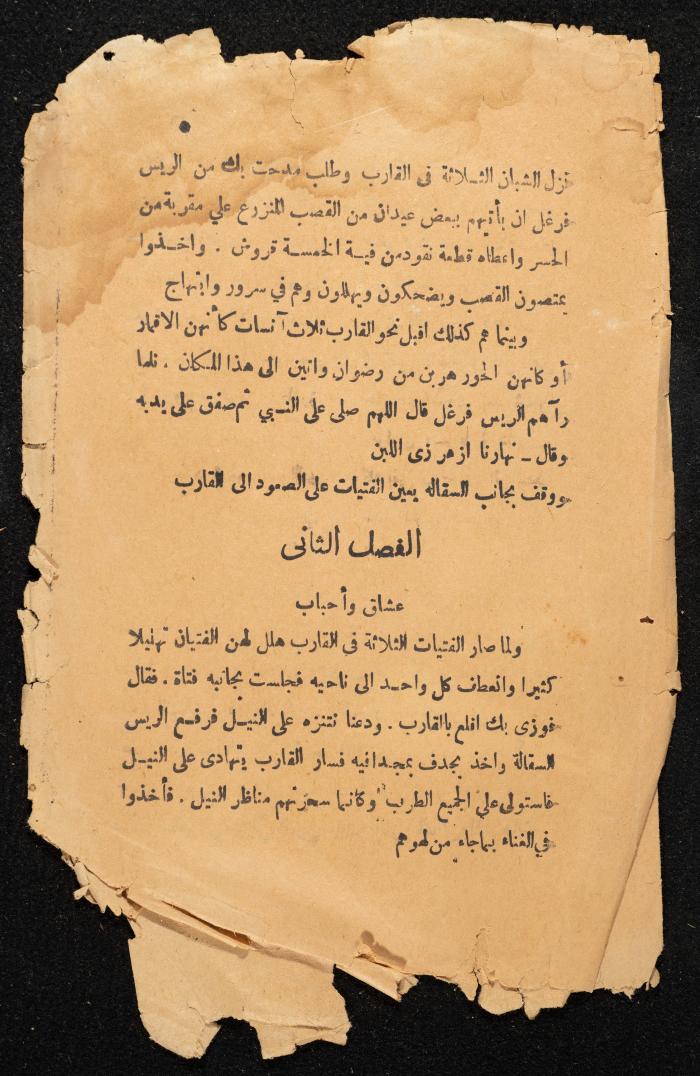 نزل الشبان الثلاثة فى القارب وطلب مدحت بك من الريس
فرغل ان يأتيهم ببعض عيدان من القصب المنزرع علي مقربة من
الجسر واعطاه قطعة نقود من فية الخمسة قروش . واخذوا
يمتصون القصب ويضحكون ويهللون وهم في سرور وابتهاج
وبينما هم كذلك اقبل نحو القارب ثلاث آنسات كأنهن الاقمار
أو كانهن الحور هربن من رضوان واتين الى هذا المكان . فلما
رآهم الريس فرغل قال اللهم صلى على النبي ثم صفق على يديه
وقال ـ نهارنا ازهر زى اللبن
ووقف بجانب السقاله يعين الفتيات على الصعود الى القارب
الفصل الثانى
عشاق وأحباب
ولما صار الفتيات الثلاثة في القارب هلل لهن الفتيان تهليلا
كثيرا وانعطف كل واحد الى ناحيه فجلست بجانبه فتاة . فقال
فوزى بك اقلع باالقارب . ودعنا نتنزه على النيل فرفع الريس
السقالة واخذ يجدف بمجدافيه فسار القارب يتهادى على النيل
فاستولى علي الجميع الطرب وكانما سحرتهم مناظر النيل . فأخذوا
في الغناء بما جاء من لهوهم